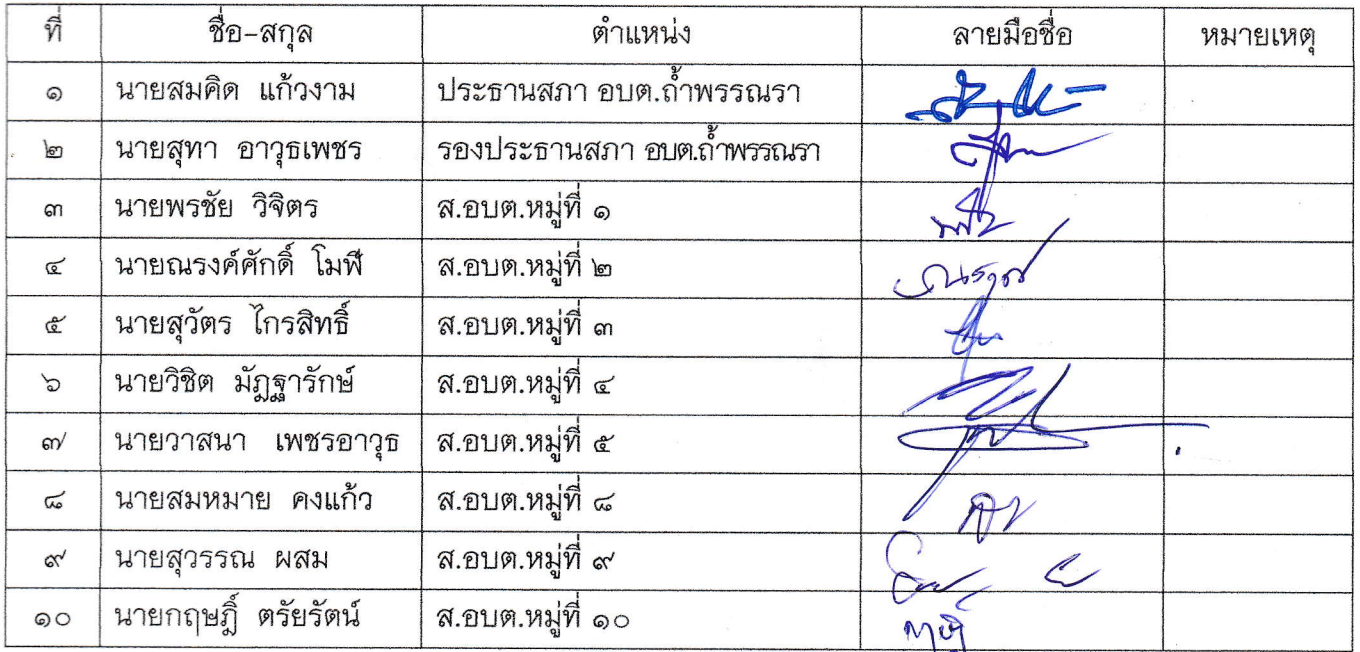 ที่ ชื่อ-สกุล ตำแหน่ง ลายมือชื่อ หมายเหตุ
๑ นายสมคิด แก้วงาม ประธานสภา อบต.ถ้ำพรรณรา
๒ นายสุทา อาวุธเพชร รองประธานสภา อบต.ถ้ำพรรณรา
๓ นายพรชัย วิจิตร ส.อบต.หมู่ที่ ๑
๔ นายณรงค์ศักดิ์ โมฬี ส.อบต.หมู่ที่ ๒
๕ นายสุวัตร ไกรสิทธิ์ ส.อบต.หมู่ที่ ๓
๖ นายวิชิต มัฎฐารักษ์ ส.อบต.หมู่ที่ ๔
๗ นายวาสนา เพชรอาวุธ ส.อบต.หมู่ที่ ๕
๘ นายสมหมาย คงแก้ว ส.อบต.หมู่ที่ ๘
๙ นายสุวรรณ ผสม ส.อบต.หมู่ที่ ๙
๑๐ นายกฤษฎิ์ ตรัยรัตน์ ส.อบต.หมู่ที่ ๑๐